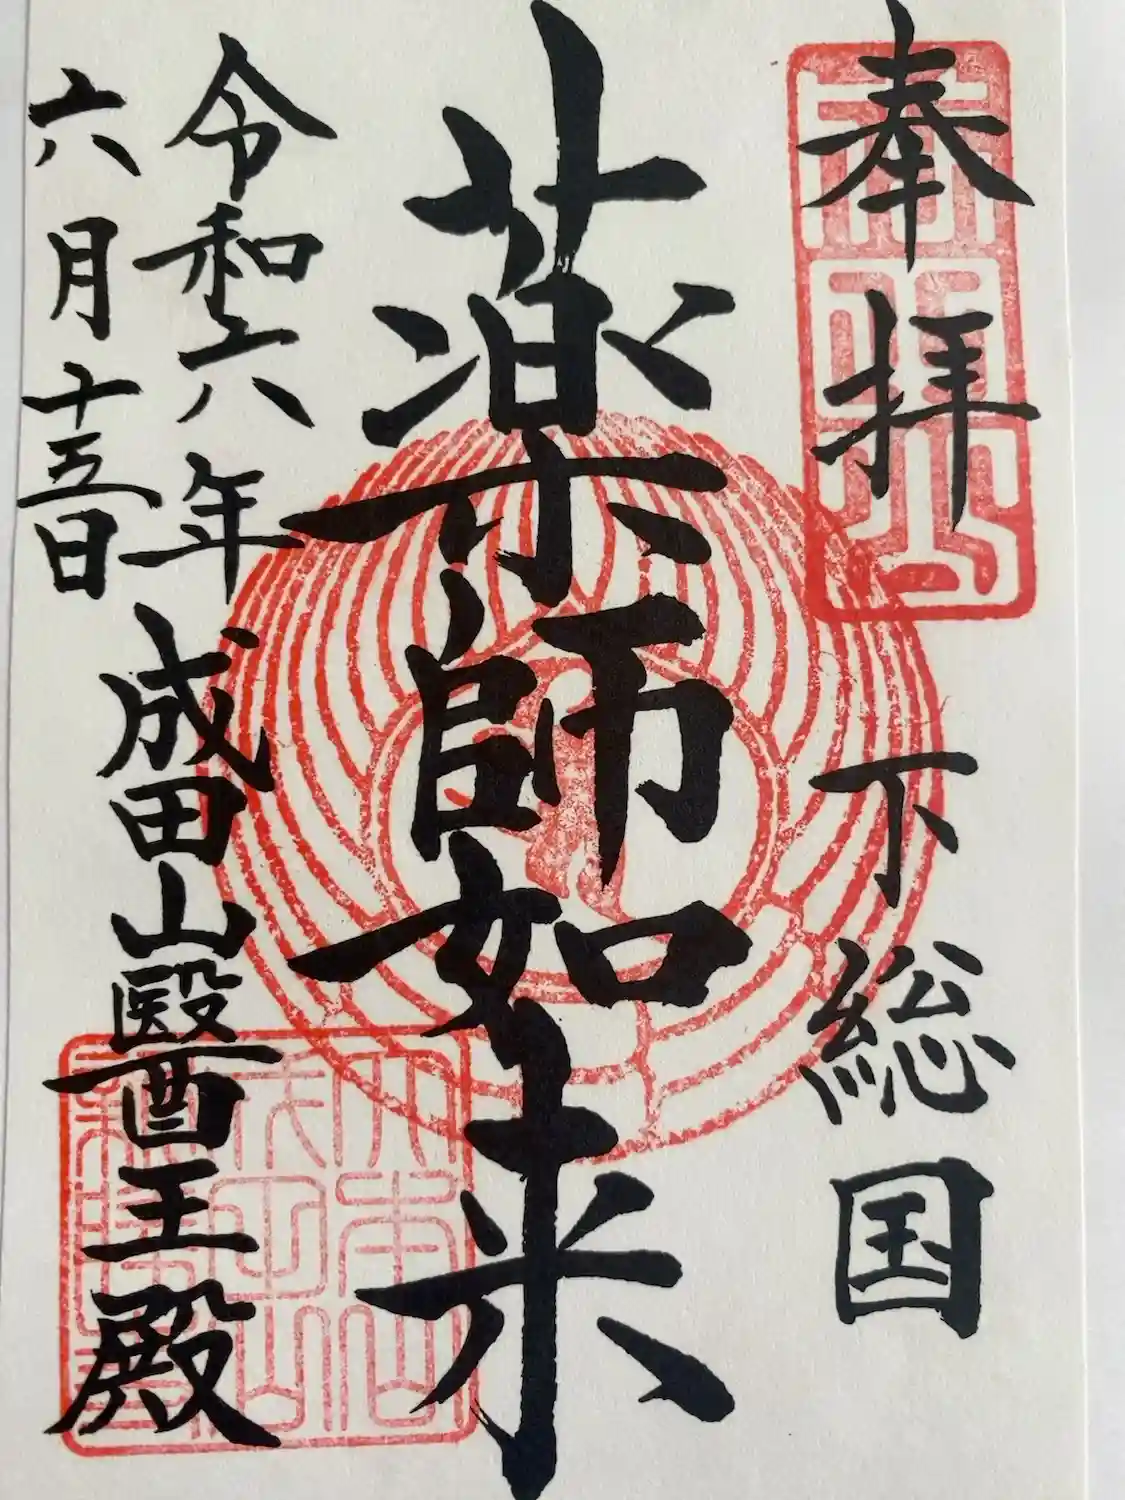 奉拝
下総国
薬師如来
令和六年
六月十五日
成田山醫王殿